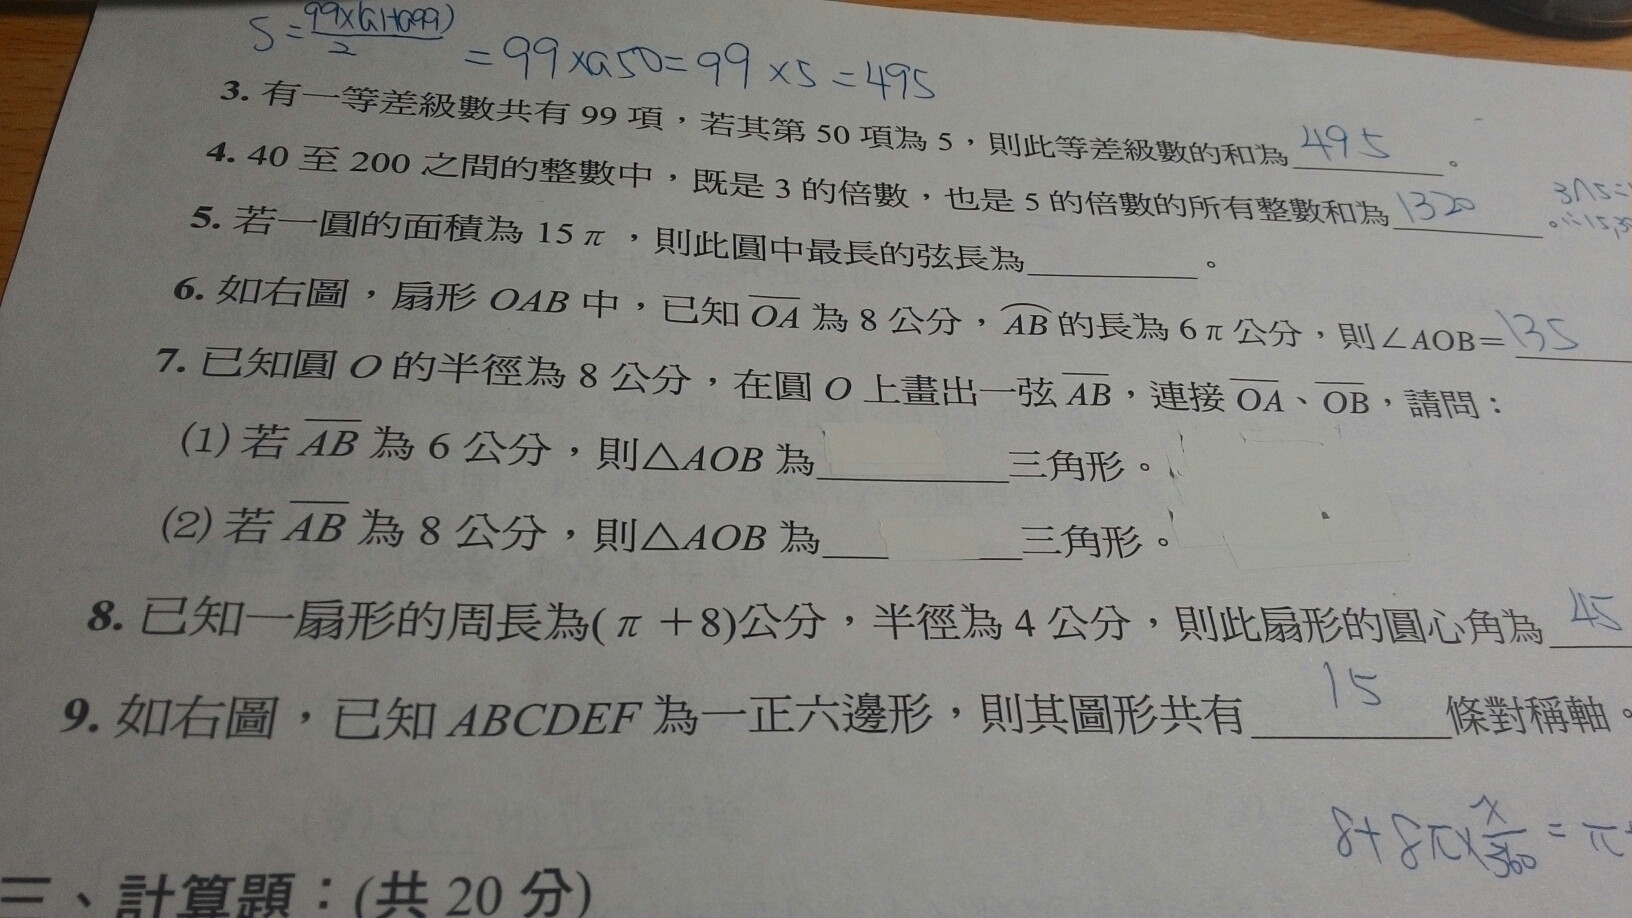 S=99×(a1+a99)/2 =99×a50=99×5=495
3. 有一等差級數共有 99 項，若其第 50 項為 5，則此等差級數的和為 495 。
4. 40 至 200 之間的整數中，既是 3 的倍數，也是 5 的倍數的所有整數和為 1320 。
5. 若一圓的面積為 15π，則此圓中最長的弦長為________。
6. 如右圖，扇形 OAB 中，已知 OA 為 8 公分，AB 的長為 6π 公分，則∠AOB= 135
7. 已知圓 O 的半徑為 8 公分，在圓 O 上畫出一弦 AB，連接 OA、OB，請問：
(1) 若 AB 為 6 公分，則△AOB 為________三角形。
(2) 若 AB 為 8 公分，則△AOB 為________三角形。
8. 已知一扇形的周長為(π+8)公分，半徑為 4 公分，則此扇形的圓心角為 45
9. 如右圖，已知 ABCDEF 為一正六邊形，則其圖形共有 15 條對稱軸。
8+8π×x/360=π+
三、計算題：(共 20 分)